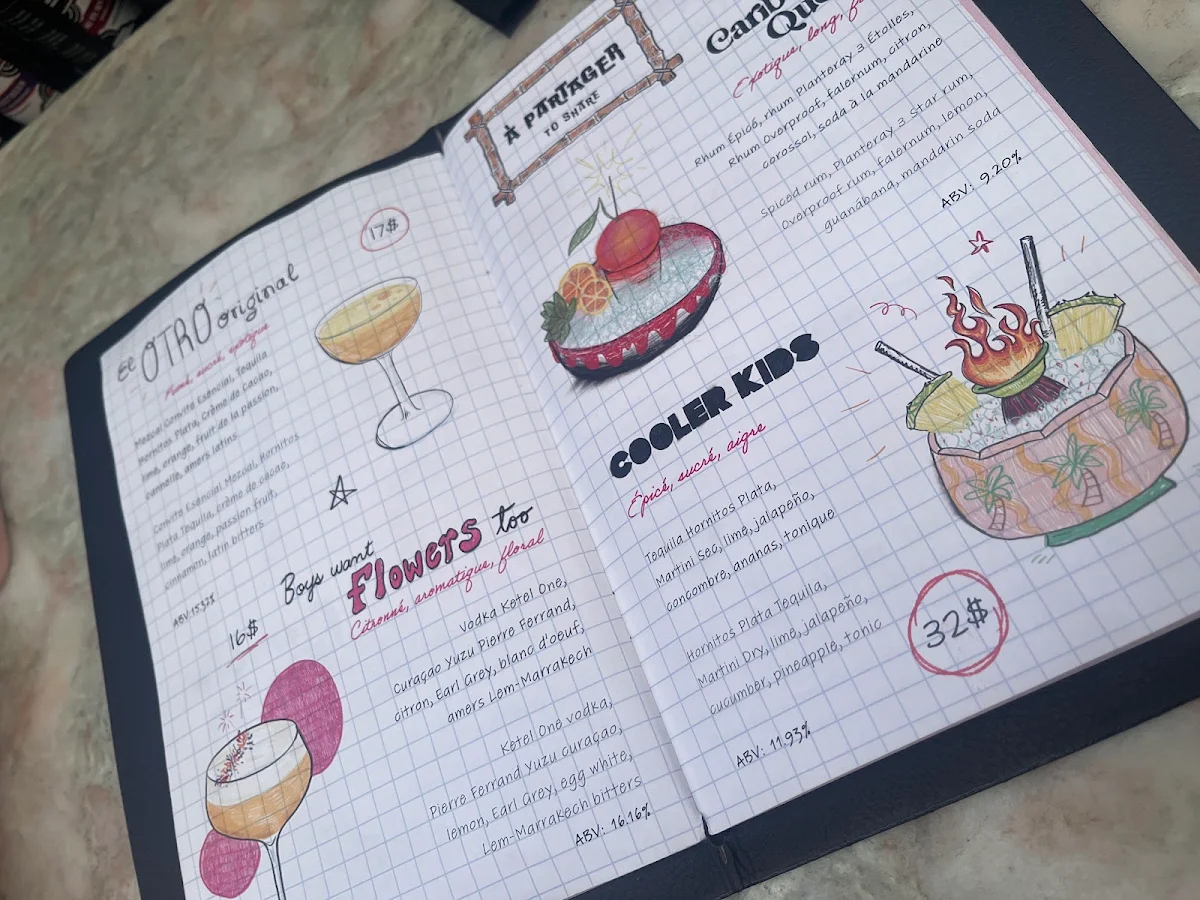 17$
El OTRO original
Fumé, sucré, exotique
Mezcal Convite Esencial, Tequila
Hornitos Plata, Crème de Cacao,
lime, orange, fruit de la passion,
cannelle, amers latins
Convite Esencial Mezcal, Hornitos
Plata Tequila, crème de cacao,
lime, orange, passion fruit,
cinnamon, latin bitters
ABV:15.37%
Boys want
Flowers too
Citronné, aromatique, floral
16$
Vodka Ketel One,
Curaçao Yuzu Pierre Ferrand,
citron, Earl Grey, blanc d'oeuf,
amers Lem-Marrakech
Ketel One vodka,
Pierre Ferrand Yuzu curaçao,
lemon, Earl Grey, egg white,
Lem-Marrakech bitters
ABV: 16.16%
À PARTAGER
TO SHARE
Exotique, long,
Rhum Épicé, rhum Planteray 3 Étoiles,
Rhum Overproof, falernum, citron,
corossol, soda à la mandarine
Spiced rum, Planteray 3 Star rum,
Overproof rum, falernum, lemon,
guanábana, mandarin soda
ABV: 9.20%
COOLER KIDS
Épicé, sucré, aigre
Tequila Hornitos Plata,
Martini Sec, lime, jalapeño,
concombre, ananas, tonique
Hornitos Plata Tequila,
Martini Dry, lime, jalapeño,
cucumber, pineapple, tonic
ABV: 11.93%
32$